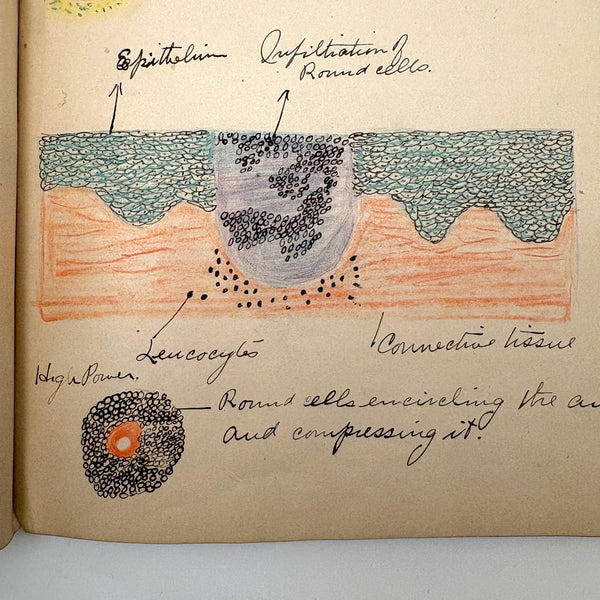 Epithelium
Infiltration of
Round cells.
Leucocytes
Connective tissue
High Power.
Round cells encircling the
and compressing it.